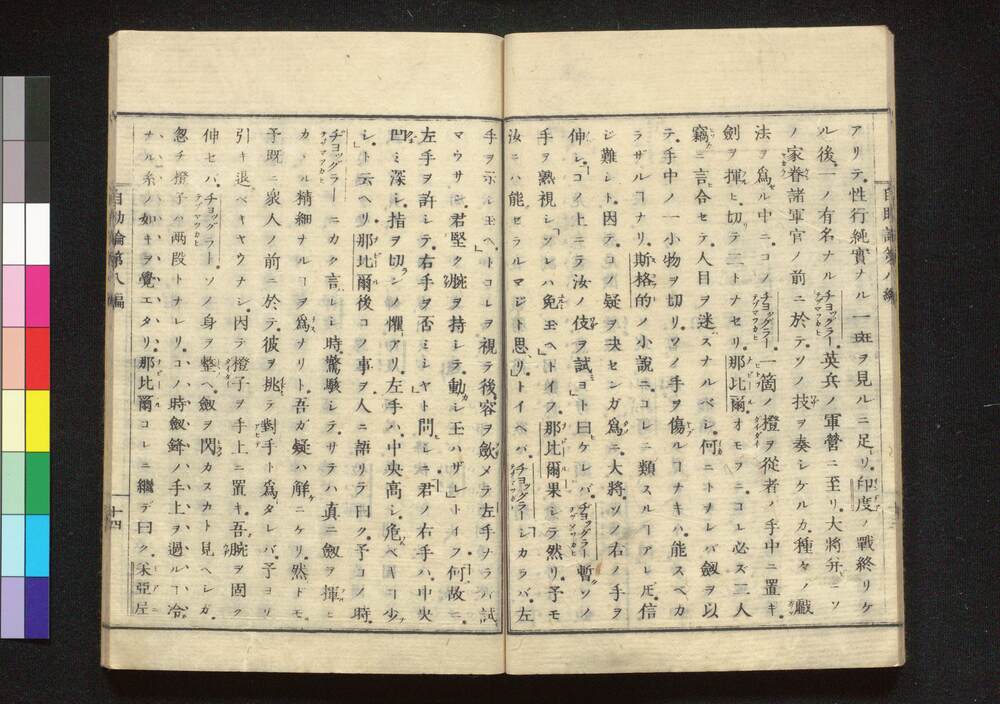 アリテ。性行純實ナル一斑ヲ見ルニ足リ。印度ノ戰終リケ
ル後。一ノ有名ナルチヨッグラー英兵ノ軍營ニ至リ。大將分ニソ
ノ家眷諸軍官ノ前ニ於テ。ソノ技ヲ奏シケルカ。種々ノ戲
法ヲ爲ル中ニ。コノチヨッグラー。一箇ノ橙ヲ從者ノ手中ニ置キ。
劍ヲ揮ヒ切テ二トナセリ。那比爾オモフニ。コレ必ス二人
竊ニ言合セテ。人目ヲ迷スナルベシ。何ニトナレバ劔ヲ以
テ。手中ノ一小物ヲ切リ。ソノ手ヲ傷ルコナキハ。能スベカ
ラザルコナリ。斯格的ノ小說ニ。コレニ類スルコアレ𪜈。信
ジ難シト。因テコノ疑ヲ決センガ爲ニ。大將ソノ右ノ手ヲ
伸シ。コノ上ニテ汝ノ伎ヲ試ヨト曰ケレバ。チヨッグラー暫ソノ
手ヲ熟視シツレハ免玉ヘトイフ。那比爾果シテ然リ。予モ
汝ニハ能セラルマジト思リ。トイヘバ。チヨッグラーシカラバ。左
手ヲ示シ玉ヘ。トコレヲ視テ後。容ヲ斂メテ左手ナラバ試
マウサン。君堅ク腕ヲ持シテ。動シ玉ハザレトイフ。何故ニ。
左手ヲ許シテ。右手ヲ否ミシヤト問ヒシニ。君ノ右手ハ。中央
凹ミ深シ。指ヲ切シノ懼アリ。左手ハ。中央高シ。危ベキコ少
シ。ト云ヘリ。那比爾後コノ事ヲ人ニ語リテ曰ク。予コノ時。
チヨッグラーニカク言レシ時。驚駭シテ。サテハ眞ニ劔ヲ揮ヒ
カヽル精細ナルコヲ爲ソリト。吾ガ疑ハ解ケニケリ。然ドモ
予既ニ衆人ノ前ニ於テ。彼ヲ挑テ對手ト爲タレバ。予ヨリ
引キ退ベキヤウナシ。因テ橙子ヲ手上ニ置キ。吾腕ヲ固ク
伸セバ。チヨッグラー。ソノ身ヲ整ヘ。劔ヲ閃カスカト見ヘシガ。
忽チ橙子ハ兩段トナレリ。コノ時劔鋒ノ手上ヲ過ルコ。冷
ナル糸ノ如キヲ覺エタリ。那比爾コレニ繼デ曰ク。米亞尼
自助論第八編
十四